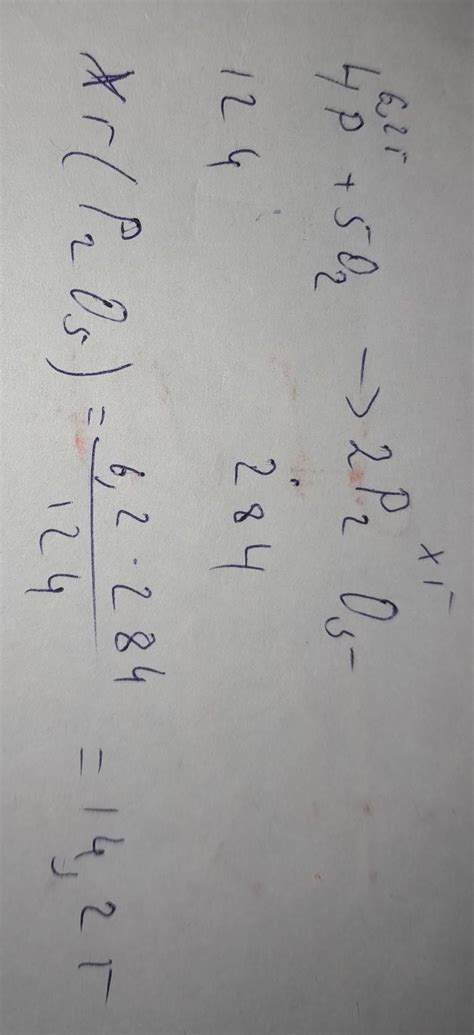 6,2г xг
4P + 5O₂ → 2P₂O₅
124 284
xг(P₂O₅) = 6,2 · 284 / 124 = 14,2г